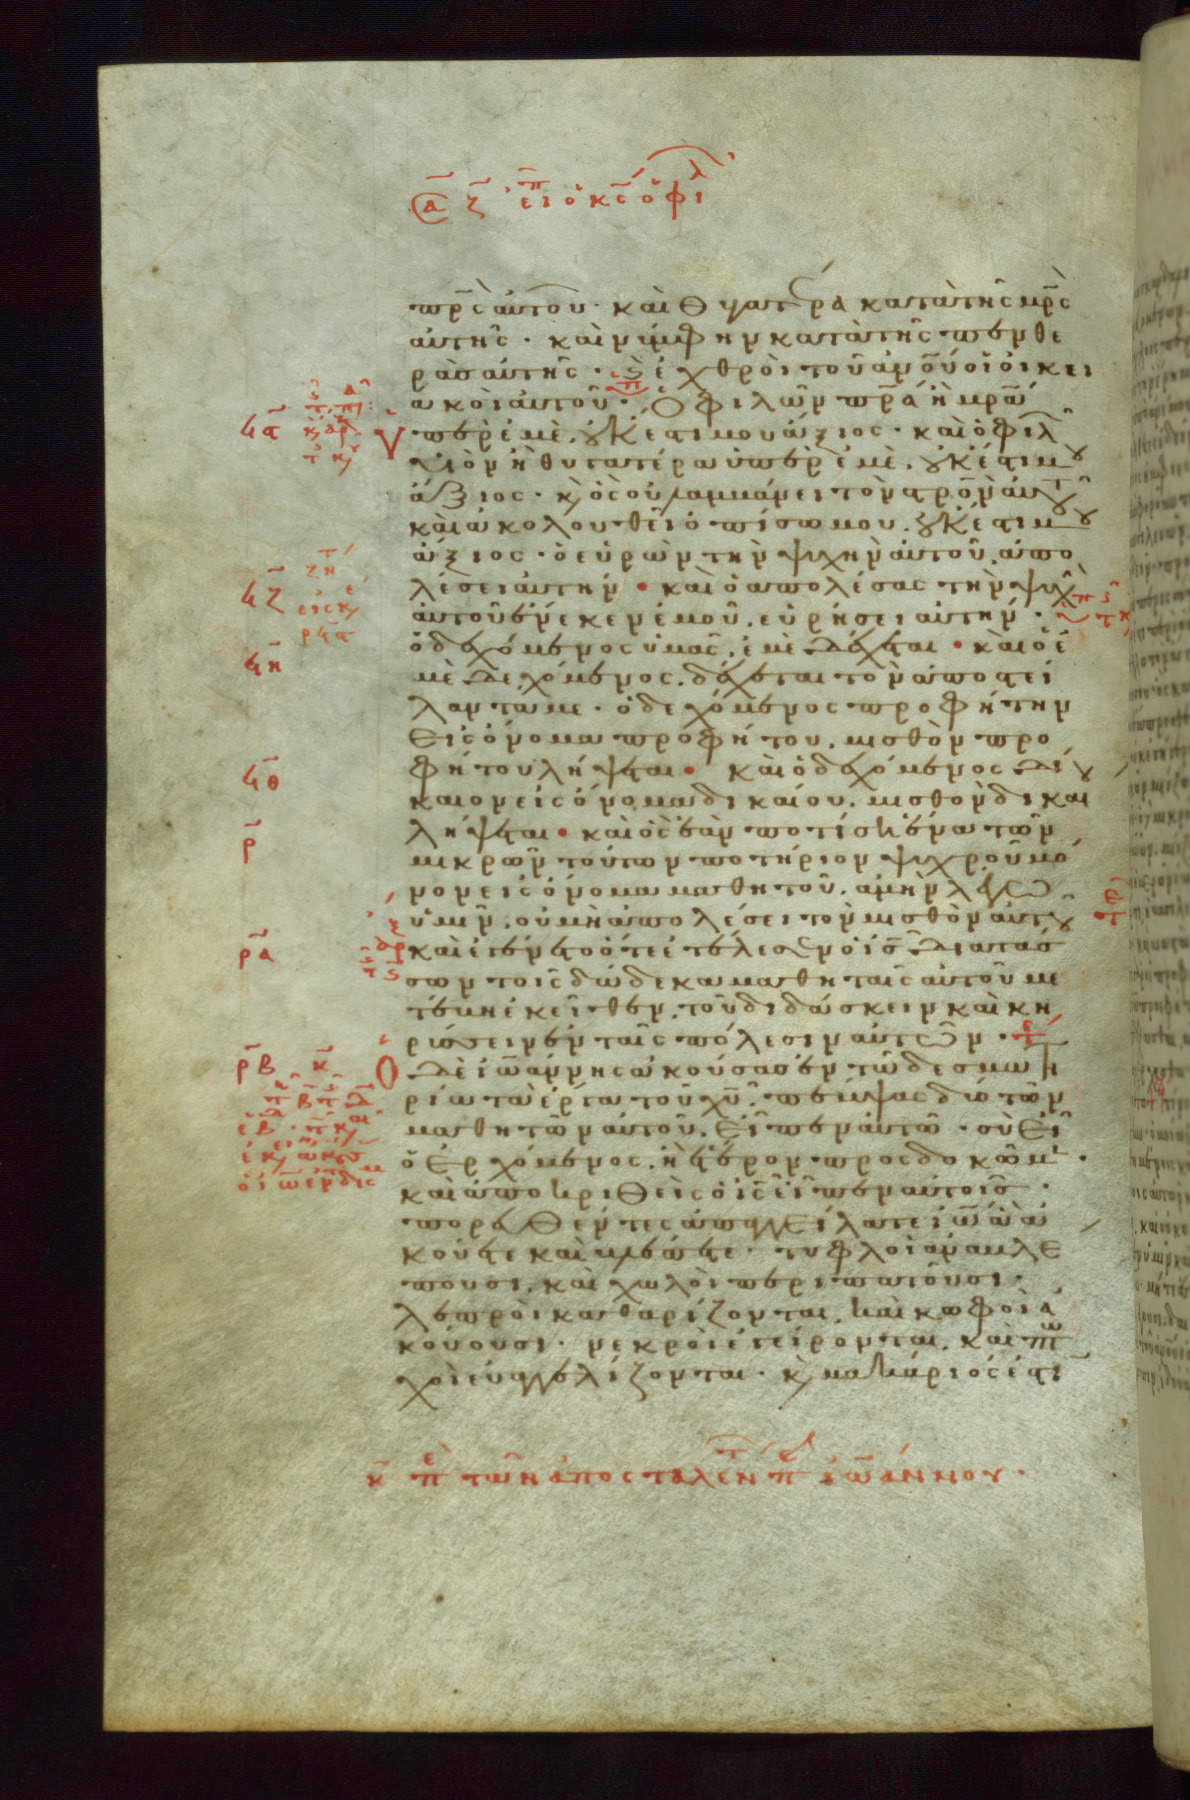 ᾱ ζ̄ εἶπεν ὁ κς̄ ὁ φιλ
πρ̅ς αὐτοῦ· καὶ θυγατέρα κατὰ τῆς μρ̅ς
αὐτῆς· καὶ νύμφην κατὰ τῆς πενθε
ρᾶς αὐτῆς· ϗ ἐχθροὶ τοῦ ἀνου̅ οἱ οἰκει
ακοὶ αὐτοῦ· Ὁ φιλῶν πρ̅α ἢ μρ̅α
ὑπὲρ ἐμὲ, οὐκ ἔστι μου ἄξιος· καὶ ὁ φιλ
υἱὸν ἢ θυγατέρα ὑπὲρ ἐμὲ, οὐκ ἔστι μου
ἄξιος· ϗ ὃς οὐ λαμβάνει τὸν στρο̅ν αὐτοῦ
καὶ ἀκολουθεῖ ὀπίσω μου, οὐκ ἔστι μου
ἄξιος· ὁ εὑρὼν τὴν ψυχὴν αὐτοῦ, ἀπο
λέσει αὐτήν· καὶ ὁ ἀπολέσας τὴν ψυχὴ
αὐτοῦ ἕνεκεν ἐμοῦ, εὑρήσει αὐτήν·
ὁ δεχόμενος ὑμᾶς, ἐμὲ δέχεται· καὶ ὁ ἐ
μὲ δεχόμενος, δέχεται τὸν ἀποστεί
λαντά με· ὁ δεχόμενος προφήτην
εἰς ὄνομα προφήτου, μισθὸν προ
φήτου λήψεται· καὶ ὁ δεχόμενος δί
καιον εἰς ὄνομα δικαίου, μισθὸν δικαι
λήψεται· καὶ ὃς ἐὰν ποτίσῃ ἕνα τῶν
μικρῶν τούτων ποτήριον ψυχροῦ μό
νον εἰς ὄνομα μαθητοῦ, ἀμὴν λέγω
ὑμῖν, οὐ μὴ ἀπολέσει τὸν μισθὸν αὐτοῦ
καὶ ἐγένετο ὅτε ἐτέλεσεν ὁ ις̅ διατάσ
σων τοῖς δώδεκα μαθηταῖς αὐτοῦ με
τέβη ἐκεῖθεν, τοῦ διδάσκειν καὶ κη
ρύσσειν ἐν ταῖς πόλεσιν αὐτῶν·
Ὁ δὲ ἰωάννης ἀκούσας ἐν τῷ δεσμωτη
ρίω τὰ ἔργα τοῦ χυ̅, πέμψας δύο τῶν
μαθητῶν αὐτοῦ, εἶπεν αὐτῶ· σὺ εἶ
ὁ ἐρχόμενος, ἢ ἕτερον προσδοκῶμ·
καὶ ἀποκριθεὶς ὁ ις̅ εἶπεν αὐτοῖς·
πορευθέντες ἀπαγγείλατε ἰω̅ ἃ ἀ
κούετε καὶ βλέπετε· τυφλοὶ ἀναβλέ
πουσι, καὶ χωλοὶ περιπατοῦσι·
λεπροὶ καθαρίζονται, καὶ κωφοὶ ἀ
κούουσι· νεκροὶ ἐγείρονται, καὶ πτω
χοὶ εὐαγγελίζονται· ϗ μακάριός ἐστι
κ̄ πε τῶν ἀποσταλέντ π ἰωάννου·
ϟζ
ϟη
ϟθ
ρ̄
ρᾱ
ρβ̄ κ̄